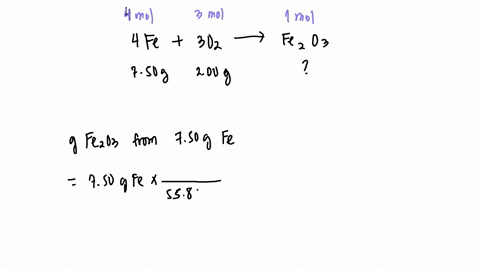 4 mol 3 mol 1 mol
4 Fe + 3O2 ⟶ Fe2O3
7.50g 2.00g ?
g Fe2O3 from 7.50 g Fe
= 7.50 g Fe × ―――
55.8